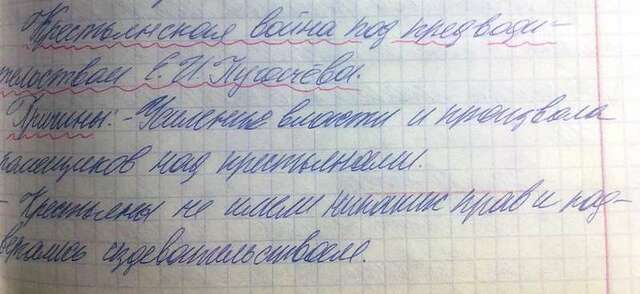 Крестьянская война под предводи-
тельством Е.И.Пугачёва.
Причины: - Усиление власти и произвола
помещиков над крестьянами.
- Крестьяны не имели никаких прав и под-
вергались издевательствам.